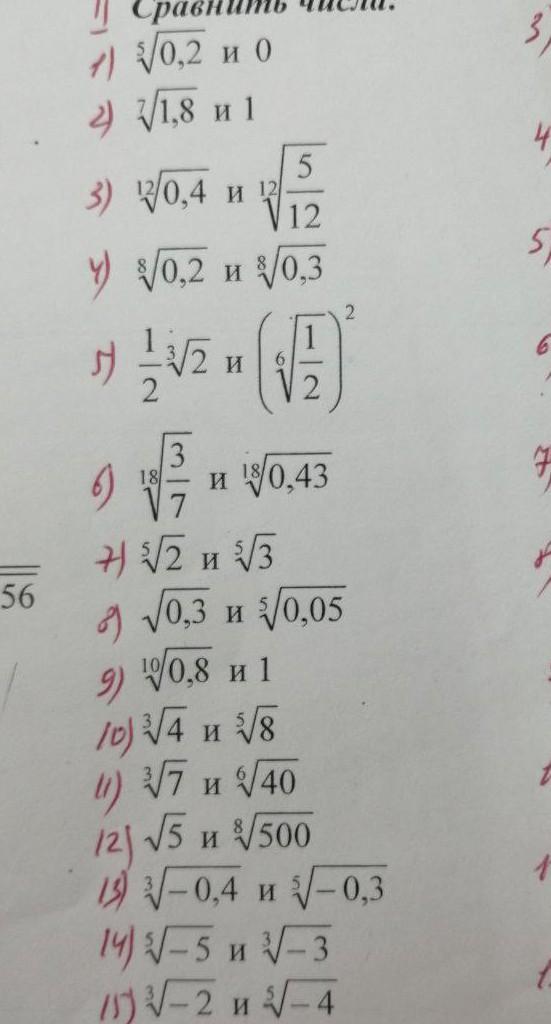 II Сравнить числа:
1) ⁵√0,2 и 0
2) ⁷√1,8 и 1
3) ¹²√0,4 и ¹²√(5/12)
4) ⁸√0,2 и ⁸√0,3
5) 1/2 ³√2 и (⁶√(1/2))²
6) ¹⁸√(3/7) и ¹⁸√0,43
7) ⁵√2 и ⁵√3
56
8) √0,3 и ⁵√0,05
9) ¹⁰√0,8 и 1
10) ³√4 и ⁵√8
11) ³√7 и ⁶√40
12) √5 и ⁸√500
13) ³√−0,4 и ⁵√−0,3
14) ⁵√−5 и ³√−3
15) ³√−2 и ⁵√−4
3)
4
5)
6
7
8